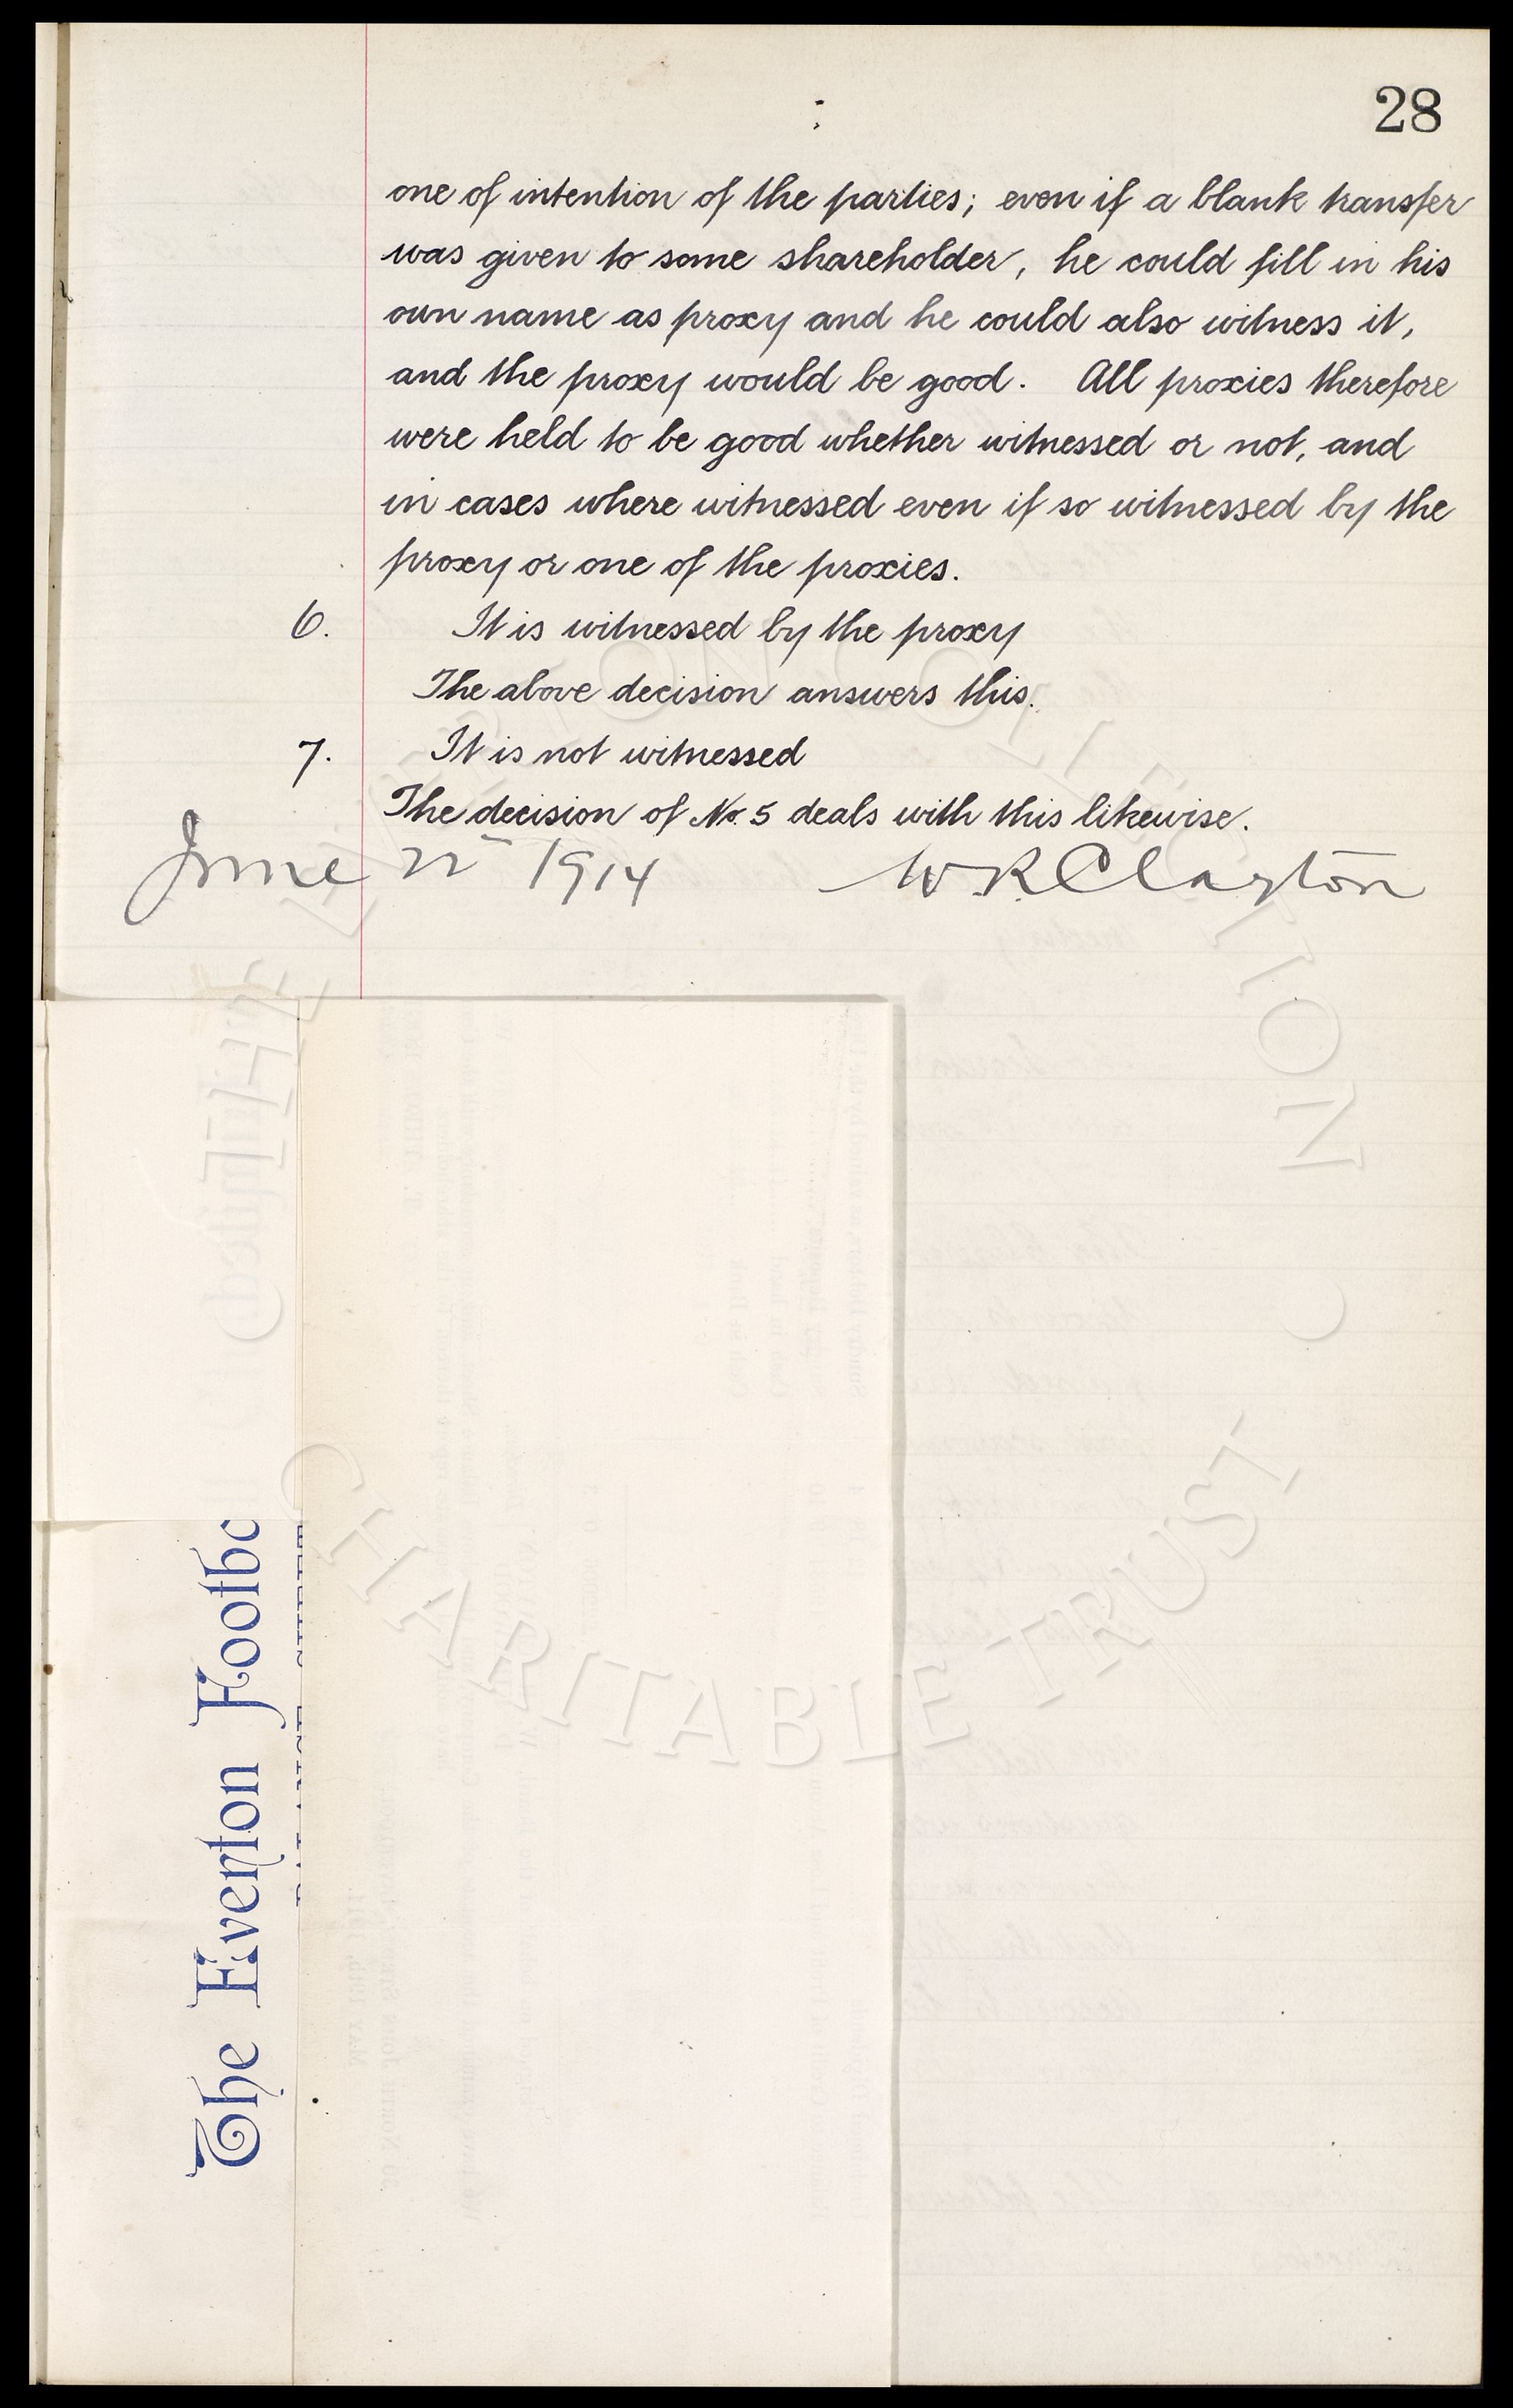 28
one of intention of the parties; even if a blank transfer
was given to some shareholder, he could fill in his
own name as proxy and he could also witness it,
and the proxy would be good. All proxies therefore
were held to be good whether witnessed or not, and
in cases where witnessed even if so witnessed by the
proxy or one of the proxies.
6. It is witnessed by the proxy
The above decision answers this.
7. It is not witnessed
The decision of No. 5 deals with this likewise.
June 22 1914 W R Clayton
THE EVERTON COLLECTION
CHARITABLE TRUST
The Everton Footba